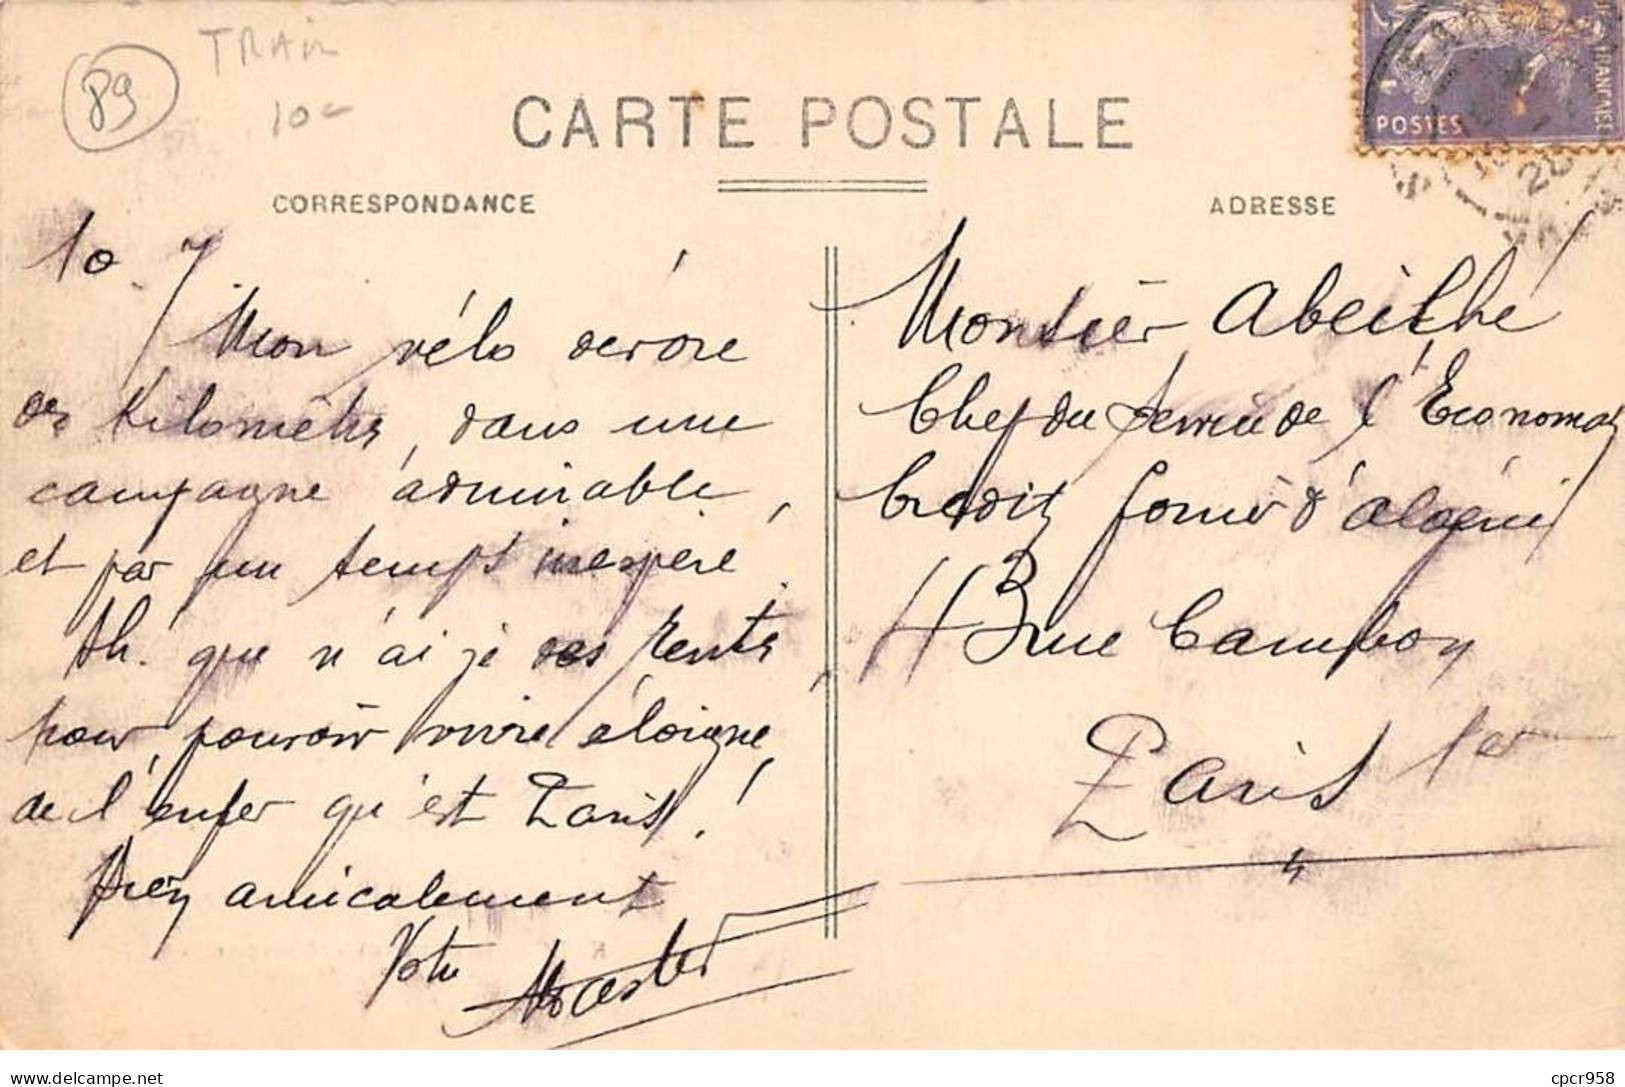 89
TRAIN
10€
CARTE POSTALE
CORRESPONDANCE
ADRESSE
POSTES
FRANCAISE
10.7
Mon vélo dévore
des kilomètres, dans une
campagne admirable,
et par un temps inespéré.
Ah! que n'ai je des rentes,
pour pouvoir vivre éloigné
de l'enfer qu'est Paris!
Bien amicalement
Votre
Monsieur Abeilhé
Chef du Service de l'Économat
Crédit foncier d'Algérie
43 rue Cambon
Paris 1er
cpcr958